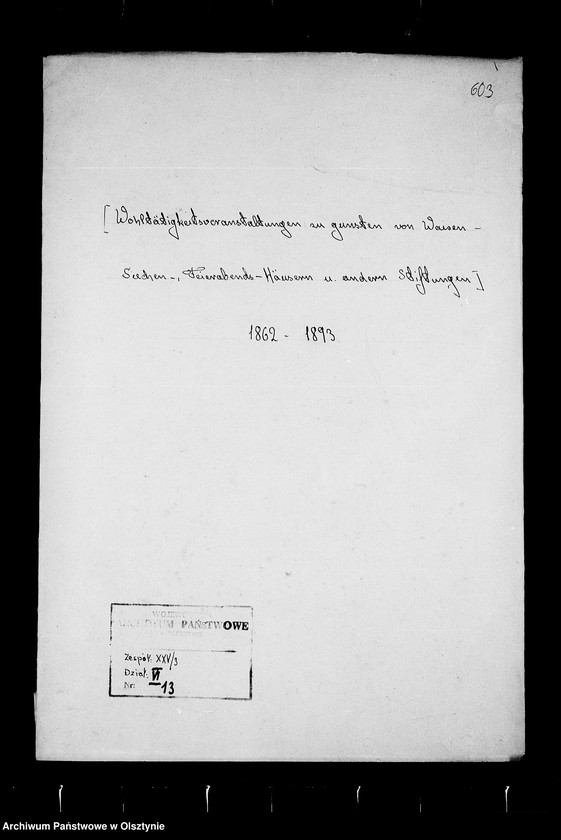 603
[Wohltätigkeitsveranstaltungen zu gunsten von Waisen-
Siechen-, Feierabends-Häusern u. andern Stiftungen]
1862 - 1893
ARCHIWUM PAŃSTWOWE
Zespół: XXV/3
Dział: VI
Nr: 13
Archiwum Państwowe w Olsztynie